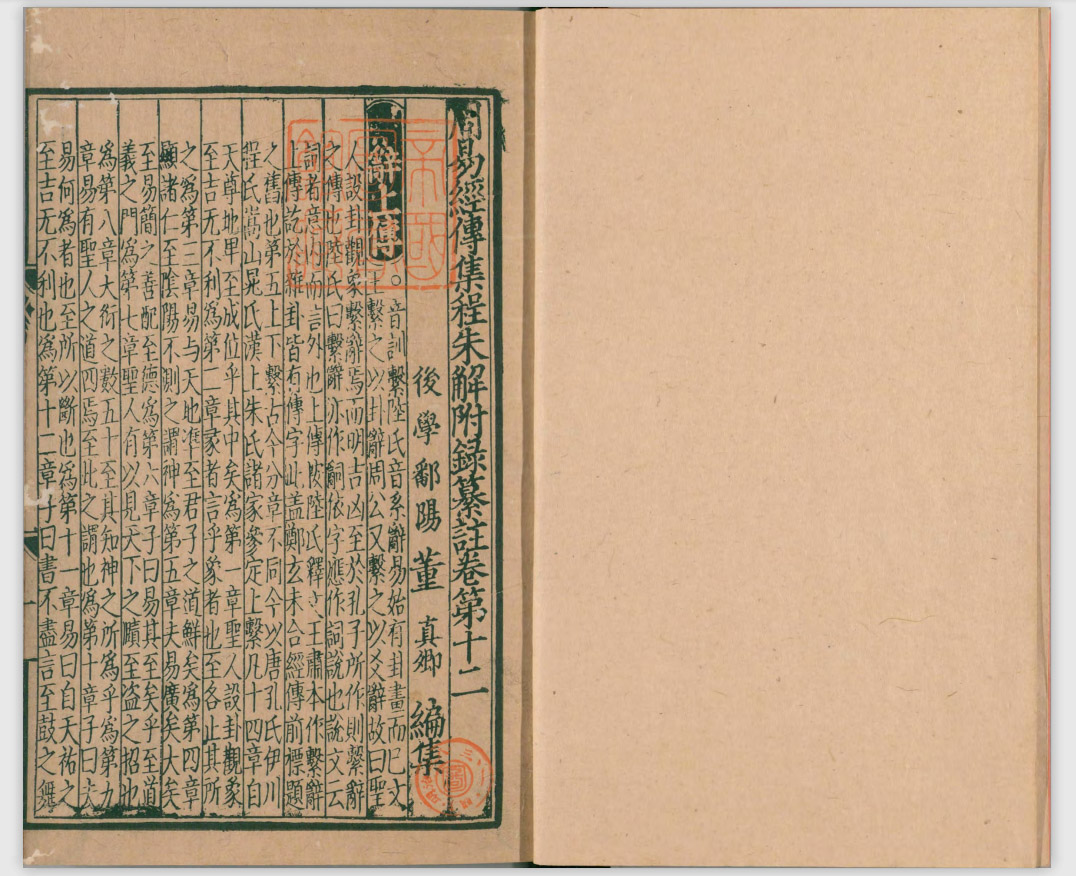 周易經傳集程朱解附録纂註卷第十二
後學鄱陽董真卿編集
繫辭上傳
。音訓繫陸氏音系辭易始有卦畫而已文
王繫之以卦辭周公又繫之以爻辭故曰聖
人設卦觀象繫辭焉而明吉凶至於孔子所作則繫辭
之傳也陸氏曰繫辭亦作嗣依字應作詞說也說文云
詞者意内而言外也上傳按陸氏釋文王肅本作繫辭
上傳訖於雜卦皆有傳字此盖鄭玄未合經傳前標題
之舊也第五上下繫古今分章不同今以唐孔氏伊川
程氏嵩山晁氏漢上朱氏諸家參定上繫凡十四章自
天尊地卑至成位乎其中矣爲第一章聖人設卦觀象
至吉无不利爲第二章彖者言乎象者也至各止其所
之爲第三章易与天地凖至君子之道鮮矣爲第四章
顯諸仁至陰陽不測之謂神爲第五章夫易廣矣大矣
至易簡之善配至德爲第六章子曰易其至矣乎至道
義之門爲第七章聖人有以見天下之賾至盗之招也
爲第八章大衍之數五十至其知神之所爲乎爲第九
章易有聖人之道四焉至此之謂也爲第十章子曰夫
易何爲者也至所以斷也爲第十一章易曰自天祐之
至吉无不利也爲第十二章子曰書不盡言至鼓之舞
帝國
圖書
館藏